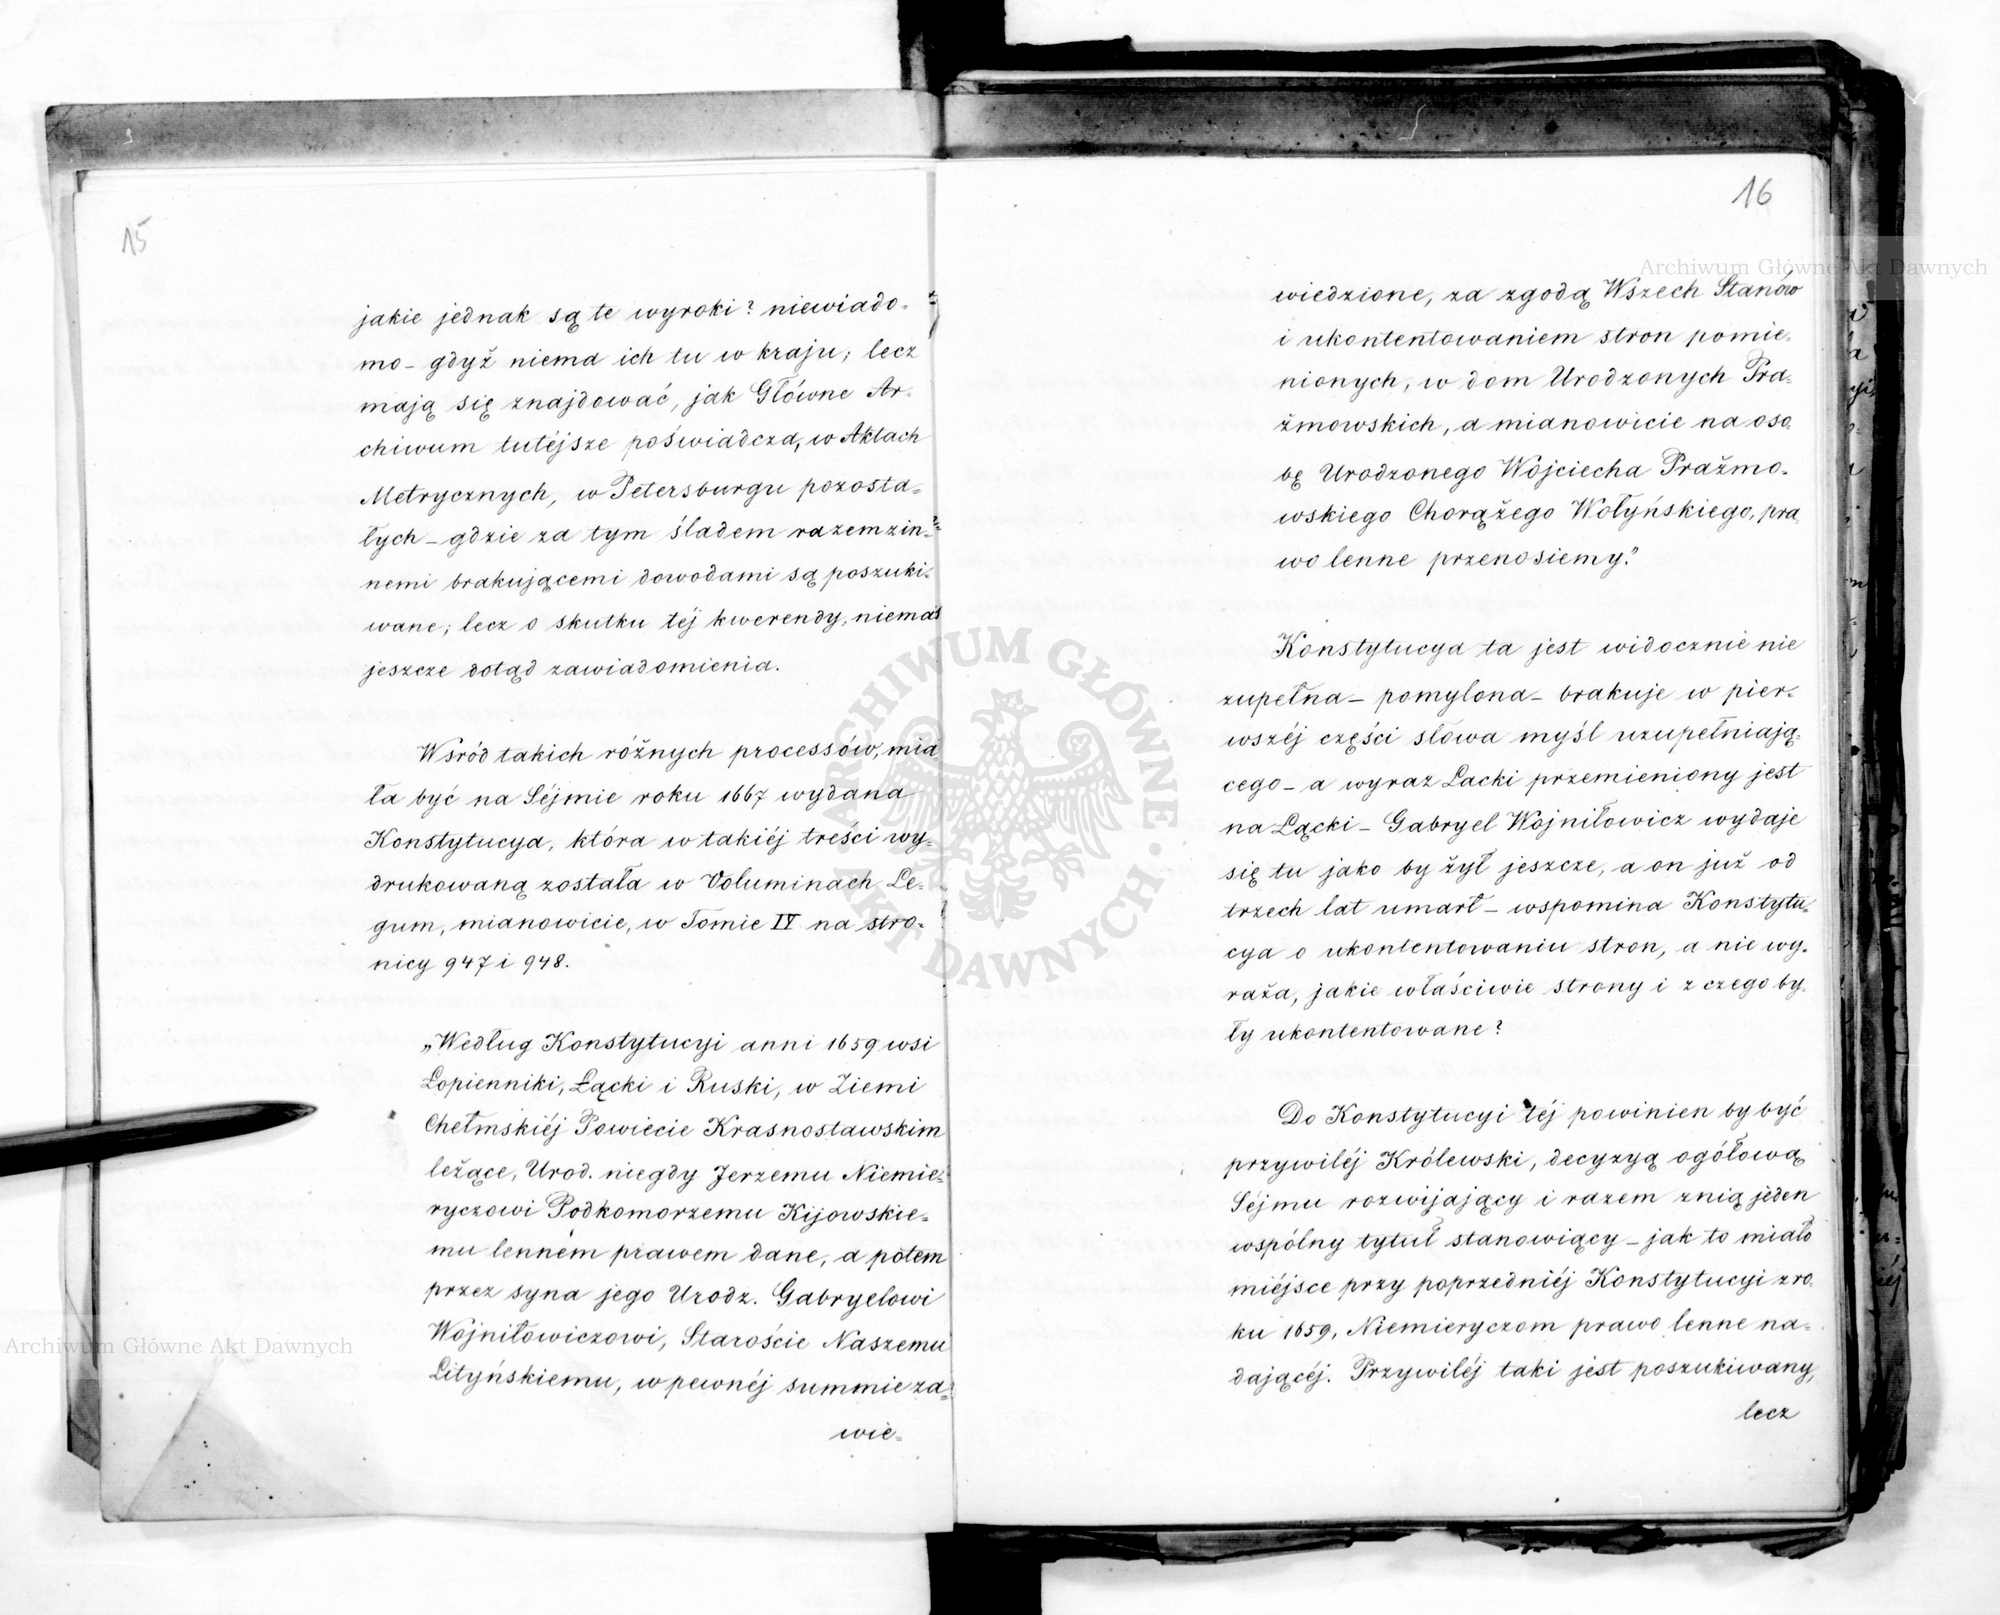 15
jakie jednak są te wyroki? niewiado-
mo – gdyż niema ich tu w kraju; lecz
mają się znajdować, jak Główne Ar-
chiwum tutéjsze poświadcza, w Aktach
Metrycznych, w Petersburgu pozosta-
łych – gdzie za tym śladem razem z in-
nemi brakującemi dowodami są poszuki-
wane; lecz o skutku téj kwerendy, niemasz
jeszcze dotąd zawiadomienia.
Wśród takich różnych processów, mia
ła być na Séjmie roku 1667 wydana
Konstytucya, która w takiéj treści wy-
drukowaną została w Voluminach Le-
gum, mianowicie, w Tomie IV na stro-
nicy 947 i 948.
„Według Konstytucyi anni 1659 wsi
Łopienniki, Łącki i Ruski, w Ziemi
Chełmskiéj Powiecie Krasnostawskim
leżące, Urod. niegdy Jerzemu Niemie-
ryczowi Podkomorzemu Kijowskie-
mu lenném prawem dane, a potem
przez syna jego Urodz. Gabryelowi
Wojniłowiczowi, Staroście Naszemu
Lityńskiemu, w pewnéj summie za-
wie-
16
wiedzione, za zgodą Wszech Stanów
i ukontentowaniem stron pomie-
nionych, w dom Urodzonych Pra-
żmowskich, a mianowicie na oso-
bę Urodzonego Wojciecha Prażmo-
wskiego Chorążego Wołyńskiego, pra
wo lenne przenosiemy."
Konstytucya ta jest widocznie nie
zupełna – pomylona – brakuje w pier-
wszéj części słowa myśl uzupełniają-
cego – a wyraz Lacki przemieniony jest
na Łącki – Gabryel Wojniłowicz wydaje
się tu jako by żył jeszcze, a on już od
trzech lat umarł – wspomina Konstytu-
cya o ukontentowaniu stron, a nie wy-
raża, jakie właściwie strony i z czego by-
ły ukontentowane?
Do Konstytucyi téj powinien by być
przywiléj Królewski, decyzyą ogółową
Séjmu rozwijający i razem z nią jeden
wspólny tytuł stanowiący – jak to miało
miéjsce przy poprzedniéj Konstytucyi z ro
ku 1659, Niemieryczom prawo lenne na-
dającéj. Przywiléj taki jest poszukiwany,
lecz
Archiwum Główne Akt Dawnych
Archiwum Główne Akt Dawnych
ARCHIWUM GŁÓWNE AKT DAWNYCH